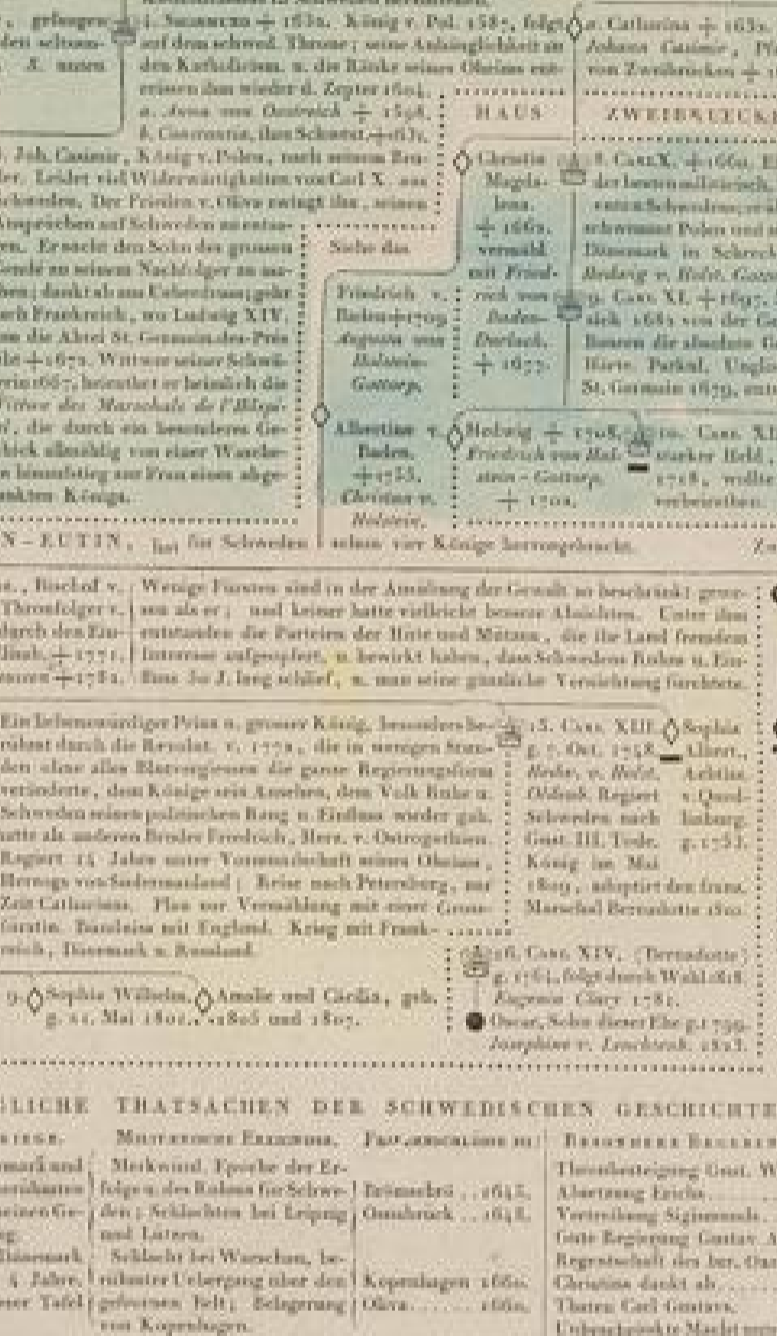 4. Sigismund + 1632. König v. Pol. 1587, folgt
auf dem schwed. Throne; seine Anhänglichkeit an
den Katholicism. u. die Ränke seines Oheims ent-
reissen ihm wieder d. Zepter 1604.
a. Anna von Oestreich + 1598.
b. Constantia, ihre Schwest. + 1631.
a. Catharina + 1632.
Johann Casimir, Pf
von Zweibrücken +
HAUS ZWEIBRUECKE
gefangen
den
S. unten
Joh. Casimir, König v. Polen, nach seinem Bru-
der. Leidet viel Widerwärtigkeiten von Carl X. aus
Schweden. Der Frieden v. Oliva zwingt ihn, seinen
Ansprüchen auf Schweden zu entsa-
gen. Er sucht den Sohn des grossen
Condé zu seinem Nachfolger zu ma-
chen; dankt ab aus Ueberdruss; geht
nach Frankreich, wo Ludwig XIV.
ihm die Abtei St. Germain-des-Prés
gibt + 1672. Wittwer seiner Schwä-
gerin 1667, heirathet er heimlich die
Wittwe des Marschals de l'Hôpi-
tal, die durch ein besonderes Ge-
schick allmählig von einer Wäsche-
rin hinaufstieg zur Frau eines abge-
dankten Königs.
Siehe das
Friedrich v.
Baden + 1709
Augusta von
Holstein-
Gottorp.
Albertine v.
Baden.
+ 1755.
Christian v.
Holstein.
Christin
Magda-
lena.
+ 1662.
vermähl
mit Fried-
rich von
Baden-
Durlach.
+ 1677.
8. Carl X. + 1660. Ei
der besten militärisch.
schwemmt Polen und s
Dänemark in Schreck
Hedwig v. Holst. Gotto
9. Carl XI. + 1697.
sich 1682 von der Ge
Bauren die absolute G
Härte. Patkul. Unglü
St. Germain 1679.
Hedwig + 1708.
Friedrich von Hol-
stein-Gottorp.
+ 1702.
10. Carl XII
starker Held,
1718, wollte
verbreiten.
N-EUTIN, hat für Schweden schon vier Könige hervorgebracht.
Bischof v.
Thronfolger v.
durch den Ein-
Elisab. + 1771.
+ 1782.
Wenige Fürsten sind in der Ausübung der Gewalt so beschränkt gewe-
sen als er; und keiner hatte vielleicht bessere Absichten. Unter ihm
entstanden die Parteien der Hüte und Mützen, die ihr Land fremdem
Interesse aufgeopfert, u. bewirkt haben, dass Schwedens Ruhm u. Ein-
fluss 50 J. lang schlief, u. man seine gänzliche Vernichtung fürchtete.
Ein liebenswürdiger Prinz u. grosser König, besonders be-
rühmt durch die Revolut. v. 1772, die in wenigen Stun-
den ohne alles Blutvergiessen die ganze Regierungsform
veränderte, dem Könige sein Ansehen, dem Volk Ruhe u.
Schweden seinen politischen Rang u. Einfluss wieder gab.
hatte als anderen Bruder Friedrich, Herz. v. Ostrogothien.
Regiert 14 Jahre unter Vormundschaft seines Oheims,
Herzogs von Südermanland; Reise nach Petersburg, zur
Zeit Catharinens. Plan zur Vermählung mit einer Gross-
fürstin. Bündniss mit England. Krieg mit Frank-
reich, Dänemark u. Russland.
15. Carl XIII.
g. 7. Oct. 1748.
Hedw. v. Holst.
Oldenb. Regiert
Schweden nach
Gust. III. Tode.
König im Mai
1809, adoptirt den franz.
Marschal Bernadotte 1810.
Sophia
Albert.,
Aebtiss.
v. Qued-
linburg.
g. 1753.
16. Carl XIV. (Bernadotte)
g. 1764, folgt durch Wahl 1818.
Eugenia Clary 1781.
Oscar, Sohn dieser Ehe g. 1799.
Josephine v. Leuchtenb. 1823.
9. Sophia Wilhelm.
g. 21. Mai 1801.
Amalie und Cäcilia, geb.
1805 und 1807.
GLICHE THATSACHEN DER SCHWEDISCHEN GESCHICHTE
RIEGE.
Dänemark
4 Jahre.
Militärische Ereignisse.
Merkwürd. Epoche der Er-
folge u. des Ruhms für Schwe-
den: Schlachten bei Leipzig
und Lützen.
Schlacht bei Warschau, be-
rühmter Uebergang über den
gefrornen Belt; Belagerung
von Kopenhagen.
Friedensschlüsse zu:
Brömsebrö .. 1645.
Osnabrück .. 1648.
Kopenhagen 1660.
Oliva ...... 1660.
Besondere Begeben
Thronbesteigung Gust. W
Absetzung Erichs
Vertreibung Sigismunds
Gute Regierung Gustav. A
Regentschaft des ber. Oxe
Christina dankt ab
Thaten Carl Gustavs.
Unbeschränkte Macht